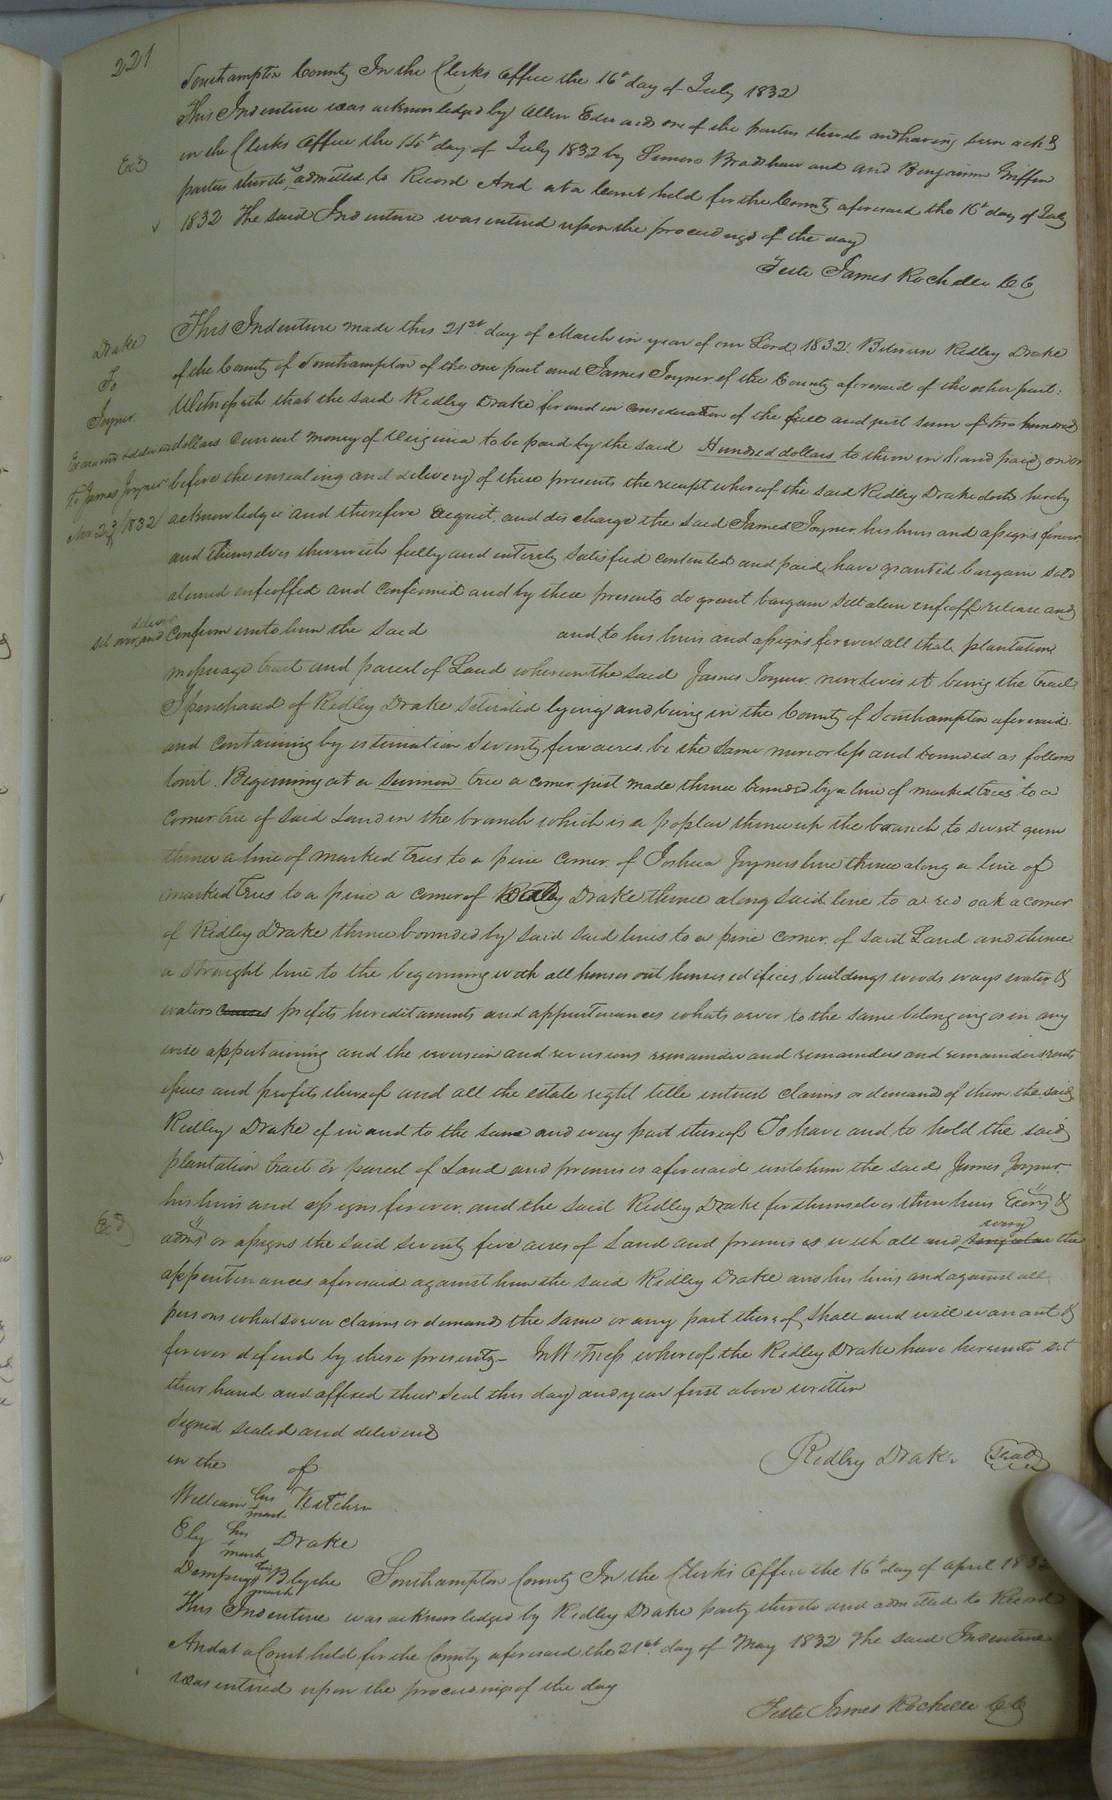 221
Southampton County In the Clerks Office the 16th day of July 1832
This Indenture was acknowledged by Allen Edwards one of the parties thereto and having been ackd
Exd
in the Clerks Office the 14th day of July 1832 by Simon Bradshaw and and Benjamin Griffin
parties thereto is admitted to Record And at a Court held for the County aforesaid the 16th day of July
1832 The said Indenture was entered upon the proceedings of the day
Teste James Rochelle CC
Drake
To
Joyner
Examined & delivered
to James Joyner
Nov 23d 1832
This Indenture made this 21st day of March in year of our Lord 1832. Between Ridley Drake
of the County of Southampton of the one part and James Joyner of the County aforesaid of the other part:
Witnesseth that the said Ridley Drake for and in consideration of the full and just sum of two hundred
dollars current money of Virginia to be paid by the said Hundred dollars to them in hand paid, on or
before the ensealing and delivery of these presents the receipt whereof the said Ridley Drake doth hereby
acknowledge and therefore acquit, and discharge the said James Joyner his heirs and assigns forever
and themselves therewith fully and entirely satisfied contented and paid, have granted bargain sold
aliened enfeoffed and confirmed and by these presents do grant bargain sell alien enfeoff release and
deliver
set over and confirm unto him the said and to his heirs and assigns forever all that plantation
messuage tract and parcel of Land wherein the said James Joyner now lives it being the tract
I purchased of Ridley Drake situated lying and being in the County of Southampton aforesaid
and containing by estimation seventy five acres be the same more or less and bounded as follows
towit. Beginning at a simmon tree a corner just made thence bounded by a line of marked trees to a
corner tree of said Land in the branch which is a poplar thence up the branch to sweet gum
thence a line of marked trees to a pine corner of Joshua Joyners line thence along a line of
marked trees to a pine a corner of Ridley Drake thence along said line to a red oak a corner
of Ridley Drake thence bounded by said said lines to a pine corner of said Land and thence
a straight line to the beginning with all houses out houses edifices buildings woods ways water &
water courses profits hereditaments and appurtenances whatsoever to the same belonging or in any
wise appertaining and the reversion and reversions remainder and remainders and remainders rents
issues and profits thereof and all the estate right title interest claims or demand of them the said
Ridley Drake of in and to the same and every part thereof To have and to hold the said
plantation tract or parcel of Land and premises aforesaid unto him the said James Joyner
his heirs and assigns forever, and the said Ridley Drake for themselves their heirs Exors &
Exd
every
adms or assigns the said seventy five acres of Land and premises with all and singular the
appurtenances aforesaid against him the said Ridley Drake and his heirs and against all
persons whatsoever claims or demands the same or any part thereof shall and will warrant &
forever defend by these presents – In Witness whereof the Ridley Drake have hereunto set
their hand and affixed their seal this day and year first above written
Signed sealed and delivered
in the of
Ridley Drake Seal
William his mark Kitchen
Ely his mark Drake
Dempsey his mark Blythe Southampton County In the Clerks Office the 16th day of April 1832
This Indenture was acknowledged by Ridley Drake party thereto and admitted to Record
And at a Court held for the County aforesaid the 21st day of May 1832 The said Indenture
was entered upon the proceedings of the day
Teste James Rochelle CC